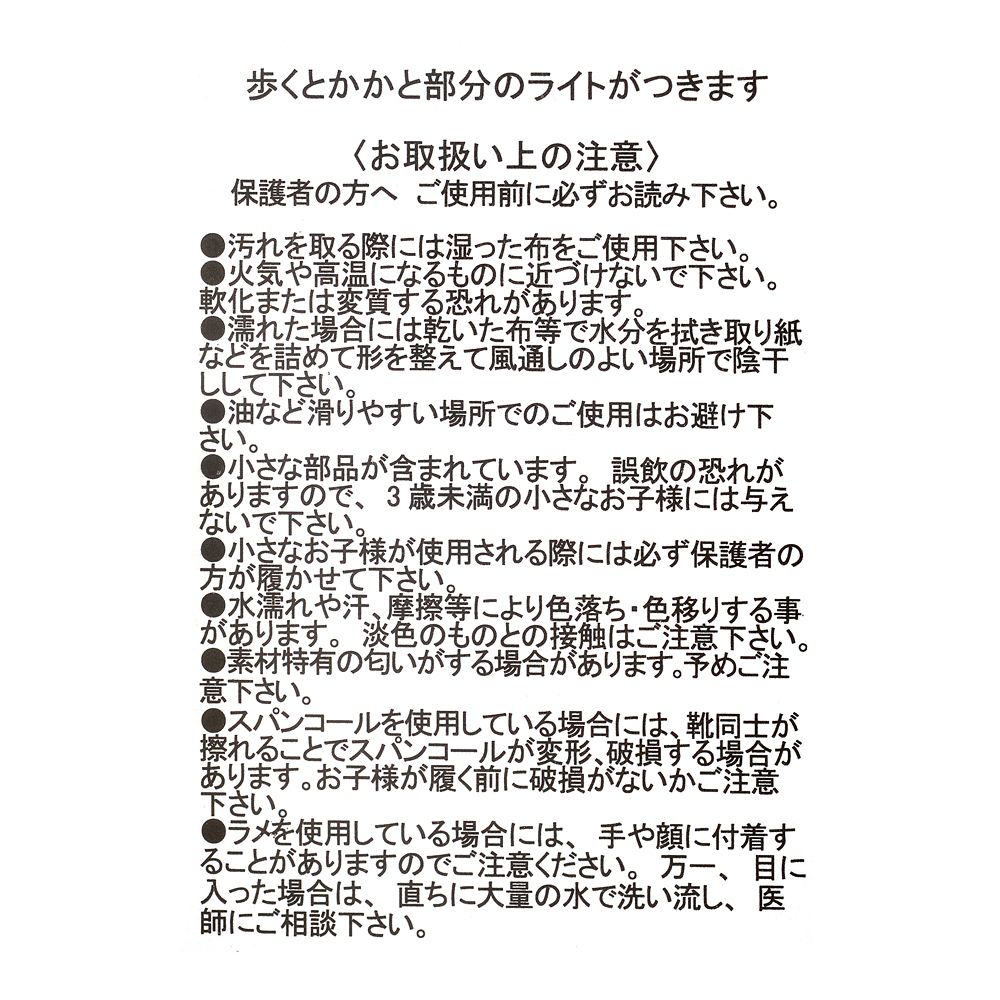 歩くとかかと部分のライトがつきます
〈お取扱い上の注意〉
保護者の方へ ご使用前に必ずお読み下さい。
●汚れを取る際には湿った布をご使用下さい。
●火気や高温になるものに近づけないで下さい。
軟化または変質する恐れがあります。
●濡れた場合には乾いた布等で水分を拭き取り紙
などを詰めて形を整えて風通しのよい場所で陰干
しして下さい。
●油など滑りやすい場所でのご使用はお避け下
さい。
●小さな部品が含まれています。誤飲の恐れが
ありますので、3歳未満の小さなお子様には与え
ないで下さい。
●小さなお子様が使用される際には必ず保護者の
方が履かせて下さい。
●水濡れや汗、摩擦等により色落ち・色移りする事
があります。 淡色のものとの接触はご注意下さい。
●素材特有の匂いがする場合があります。予めご注
意下さい。
●スパンコールを使用している場合には、靴同士が
擦れることでスパンコールが変形、破損する場合が
あります。お子様が履く前に破損がないかご注意
下さい。
●ラメを使用している場合には、手や顔に付着す
ることがありますのでご注意ください。万一、目に
入った場合は、直ちに大量の水で洗い流し、医
師にご相談下さい。